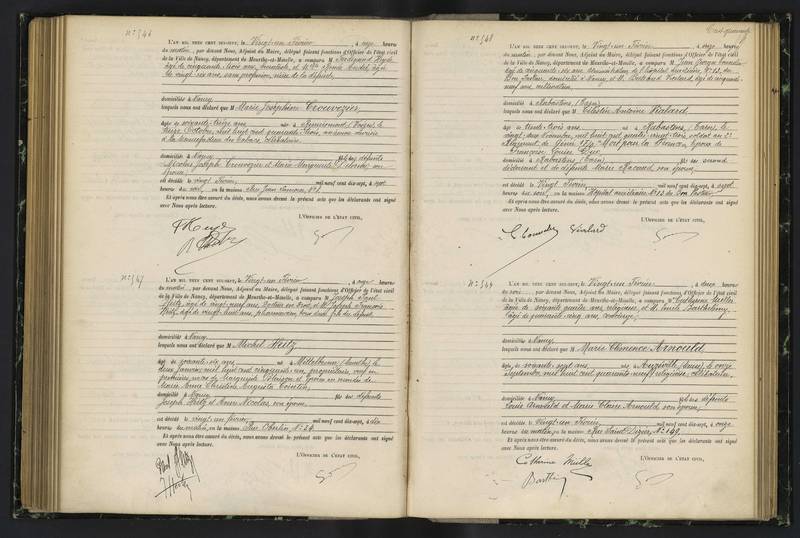 N° 546
L'AN MIL NEUF CENT DIX-SEPT, le Vingt-un Février, à onze heures
du matin, par devant Nous, Adjoint au Maire, délégué faisant fonctions d'Officier de l'état civil
de la Ville de Nancy, département de Meurthe-et-Moselle, a comparu M. Ferdinand
âgé de cinquante trois ans,
de vingt six ans, sans profession, nièce de la défunte,
domiciliés à Nancy
lesquels nous ont déclaré que M Marie Joséphine Crouvezier,
âgée de soixante-treize ans née à Remiremont (Vosges), le
treize Octobre, mil huit cent quarante trois, ancienne ouvrière
à la manufacture des tabacs, célibataire,
domiciliée à Nancy fille des défunts
Nicolas Joseph Crouvezier et Marie Marguerite son
épouse,
est décédée le vingt Février, mil neuf cent dix-sept, à sept
heures du soir, en la maison rue Jean Lamour, N°
Et après nous être assuré du décès, nous avons dressé le présent acte que les déclarants ont signé
avec Nous après lecture.
L'OFFICIER DE L'ÉTAT CIVIL,
N° 547
L'AN MIL NEUF CENT DIX-SEPT, le Vingt-un Février, à onze heures
du matin, par devant Nous, Adjoint au Maire, délégué faisant fonctions d'Officier de l'état civil
de la Ville de Nancy, département de Meurthe-et-Moselle, a comparu M. Joseph Paul
Heitz, âgé de vingt-neuf ans, docteur en droit, et M. Joseph François
Heitz, âgé de vingt-huit ans, pharmacien, tous deux fils du défunt,
domiciliés à Nancy
lesquels nous ont déclaré que M Michel Heitz
âgé de soixante-six ans né à Mittelbronn (Meurthe), le
deux janvier, mil huit cent cinquante-un, propriétaire, veuf en
premières noces de Marguerite et époux en secondes de
Marie Anne Christine Augusta
domicilié à Nancy fils des défunts
Joseph Heitz et Anne Nicolas, son épouse,
est décédé le vingt-un février, mil neuf cent dix-sept, à dix
heures du matin, en la maison rue Oberlin, N° 24
Et après nous être assuré du décès, nous avons dressé le présent acte que les déclarants ont signé
avec Nous après lecture.
L'OFFICIER DE L'ÉTAT CIVIL,
N° 548
L'AN MIL NEUF CENT DIX-SEPT, le Vingt-un Février, à onze heures
du matin, par devant Nous, Adjoint au Maire, délégué faisant fonctions d'Officier de l'état civil
de la Ville de Nancy, département de Meurthe-et-Moselle, a comparu M. Jean George
âgé de cinquante-six ans, administrateur de l'hôpital auxiliaire N° 13, du
Bon Pasteur, domicilié à Nancy, et M. Bertrand Vialard, âgé de cinquante-
neuf ans, métreur,
domicilié à Rabastens (Tarn)
lesquels nous ont déclaré que M Célestin Antoine Vialard,
âgé de trente-trois ans né à Rabastens (Tarn), le
vingt-deux Novembre, mil huit cent quatre-vingt-trois, soldat au 2e
Régiment de Génie, Mort pour la France, époux de
Françoise Louise
domicilié à Rabastens (Tarn) fils du second
déclarant et de défunte Marie son épouse,
est décédé le Vingt Février, mil neuf cent dix-sept, à sept
heures du soir, en la maison Hôpital auxiliaire N° 13, du Bon Pasteur
Et après nous être assuré du décès, nous avons dressé le présent acte que les déclarants ont signé
avec Nous après lecture.
L'OFFICIER DE L'ÉTAT CIVIL,
Vialard
N° 549
L'AN MIL NEUF CENT DIX-SEPT, le Vingt-un Février, à deux heures
du soir, par devant Nous, Adjoint au Maire, délégué faisant fonctions d'Officier de l'état civil
de la Ville de Nancy, département de Meurthe-et-Moselle, a comparu M. Catherine Muller
âgée de soixante quatre ans, religieuse, et M. Emile Barthélemy,
âgé de quarante-cinq ans, concierge,
domiciliés à Nancy
lesquels nous ont déclaré que M Marie Clémence Arnould,
âgée de soixante-sept ans née à Auzéville (Meuse), le onze
Septembre, mil huit cent quarante-neuf, religieuse, célibataire,
domiciliée à Nancy fille des défunts
Louis Arnould et Marie Claire Arnould, son épouse,
est décédée le Vingt-un Février, mil neuf cent dix-sept, à onze
heures du matin, en la maison rue Saint Dizier, N° 149
Et après nous être assuré du décès, nous avons dressé le présent acte que les déclarants ont signé
avec Nous après lecture.
L'OFFICIER DE L'ÉTAT CIVIL,
Catherine Muller